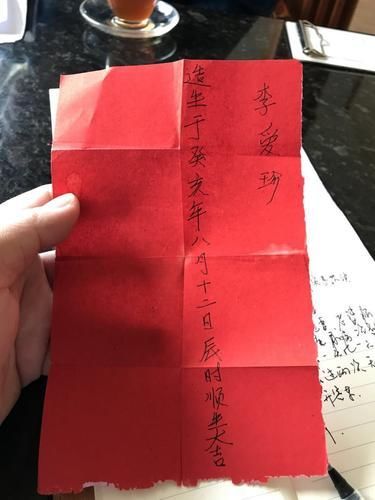 李爱珍
造生于癸亥年八月十二日辰时顺生大吉